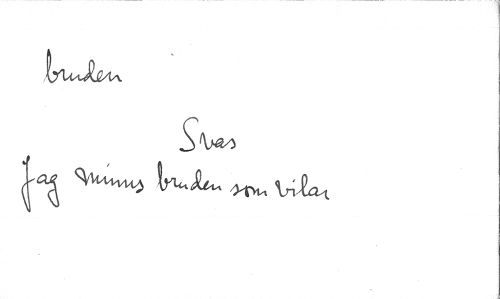 bruden
Svas
Jag minns bruden som vilar